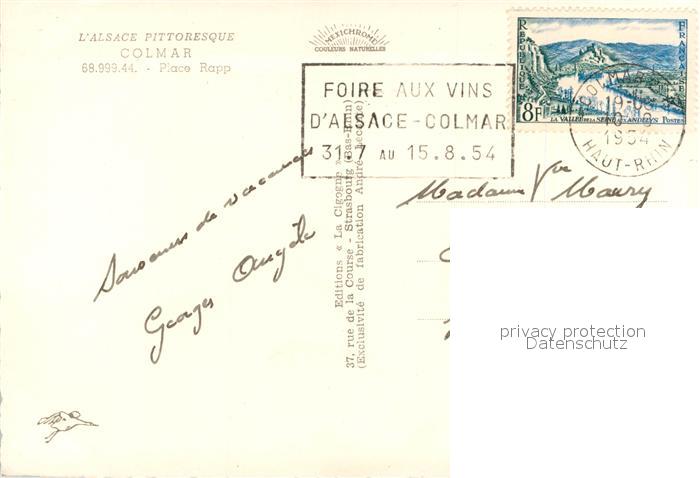 L'ALSACE PITTORESQUE
COLMAR
68.999.44. - Place Rapp
MEXICHROME
COULEURS NATURELLES
FOIRE AUX VINS
D'ALSACE - COLMAR
31.7 AU 15.8.54
REPUBLIQUE FRANÇAISE
8F
LA VALLEE DE LA SEINE AUX ANDELYS POSTES
COLMAR
19-
1954
HAUT-RHIN
Souvenirs de vacances
Georges Angèle
Editions « La Cigogne »
37, rue de la Course - Strasbourg (Bas-Rhin)
(Exclusivité de fabrication André Leconte)
Madame Vve Maury
privacy protection
Datenschutz